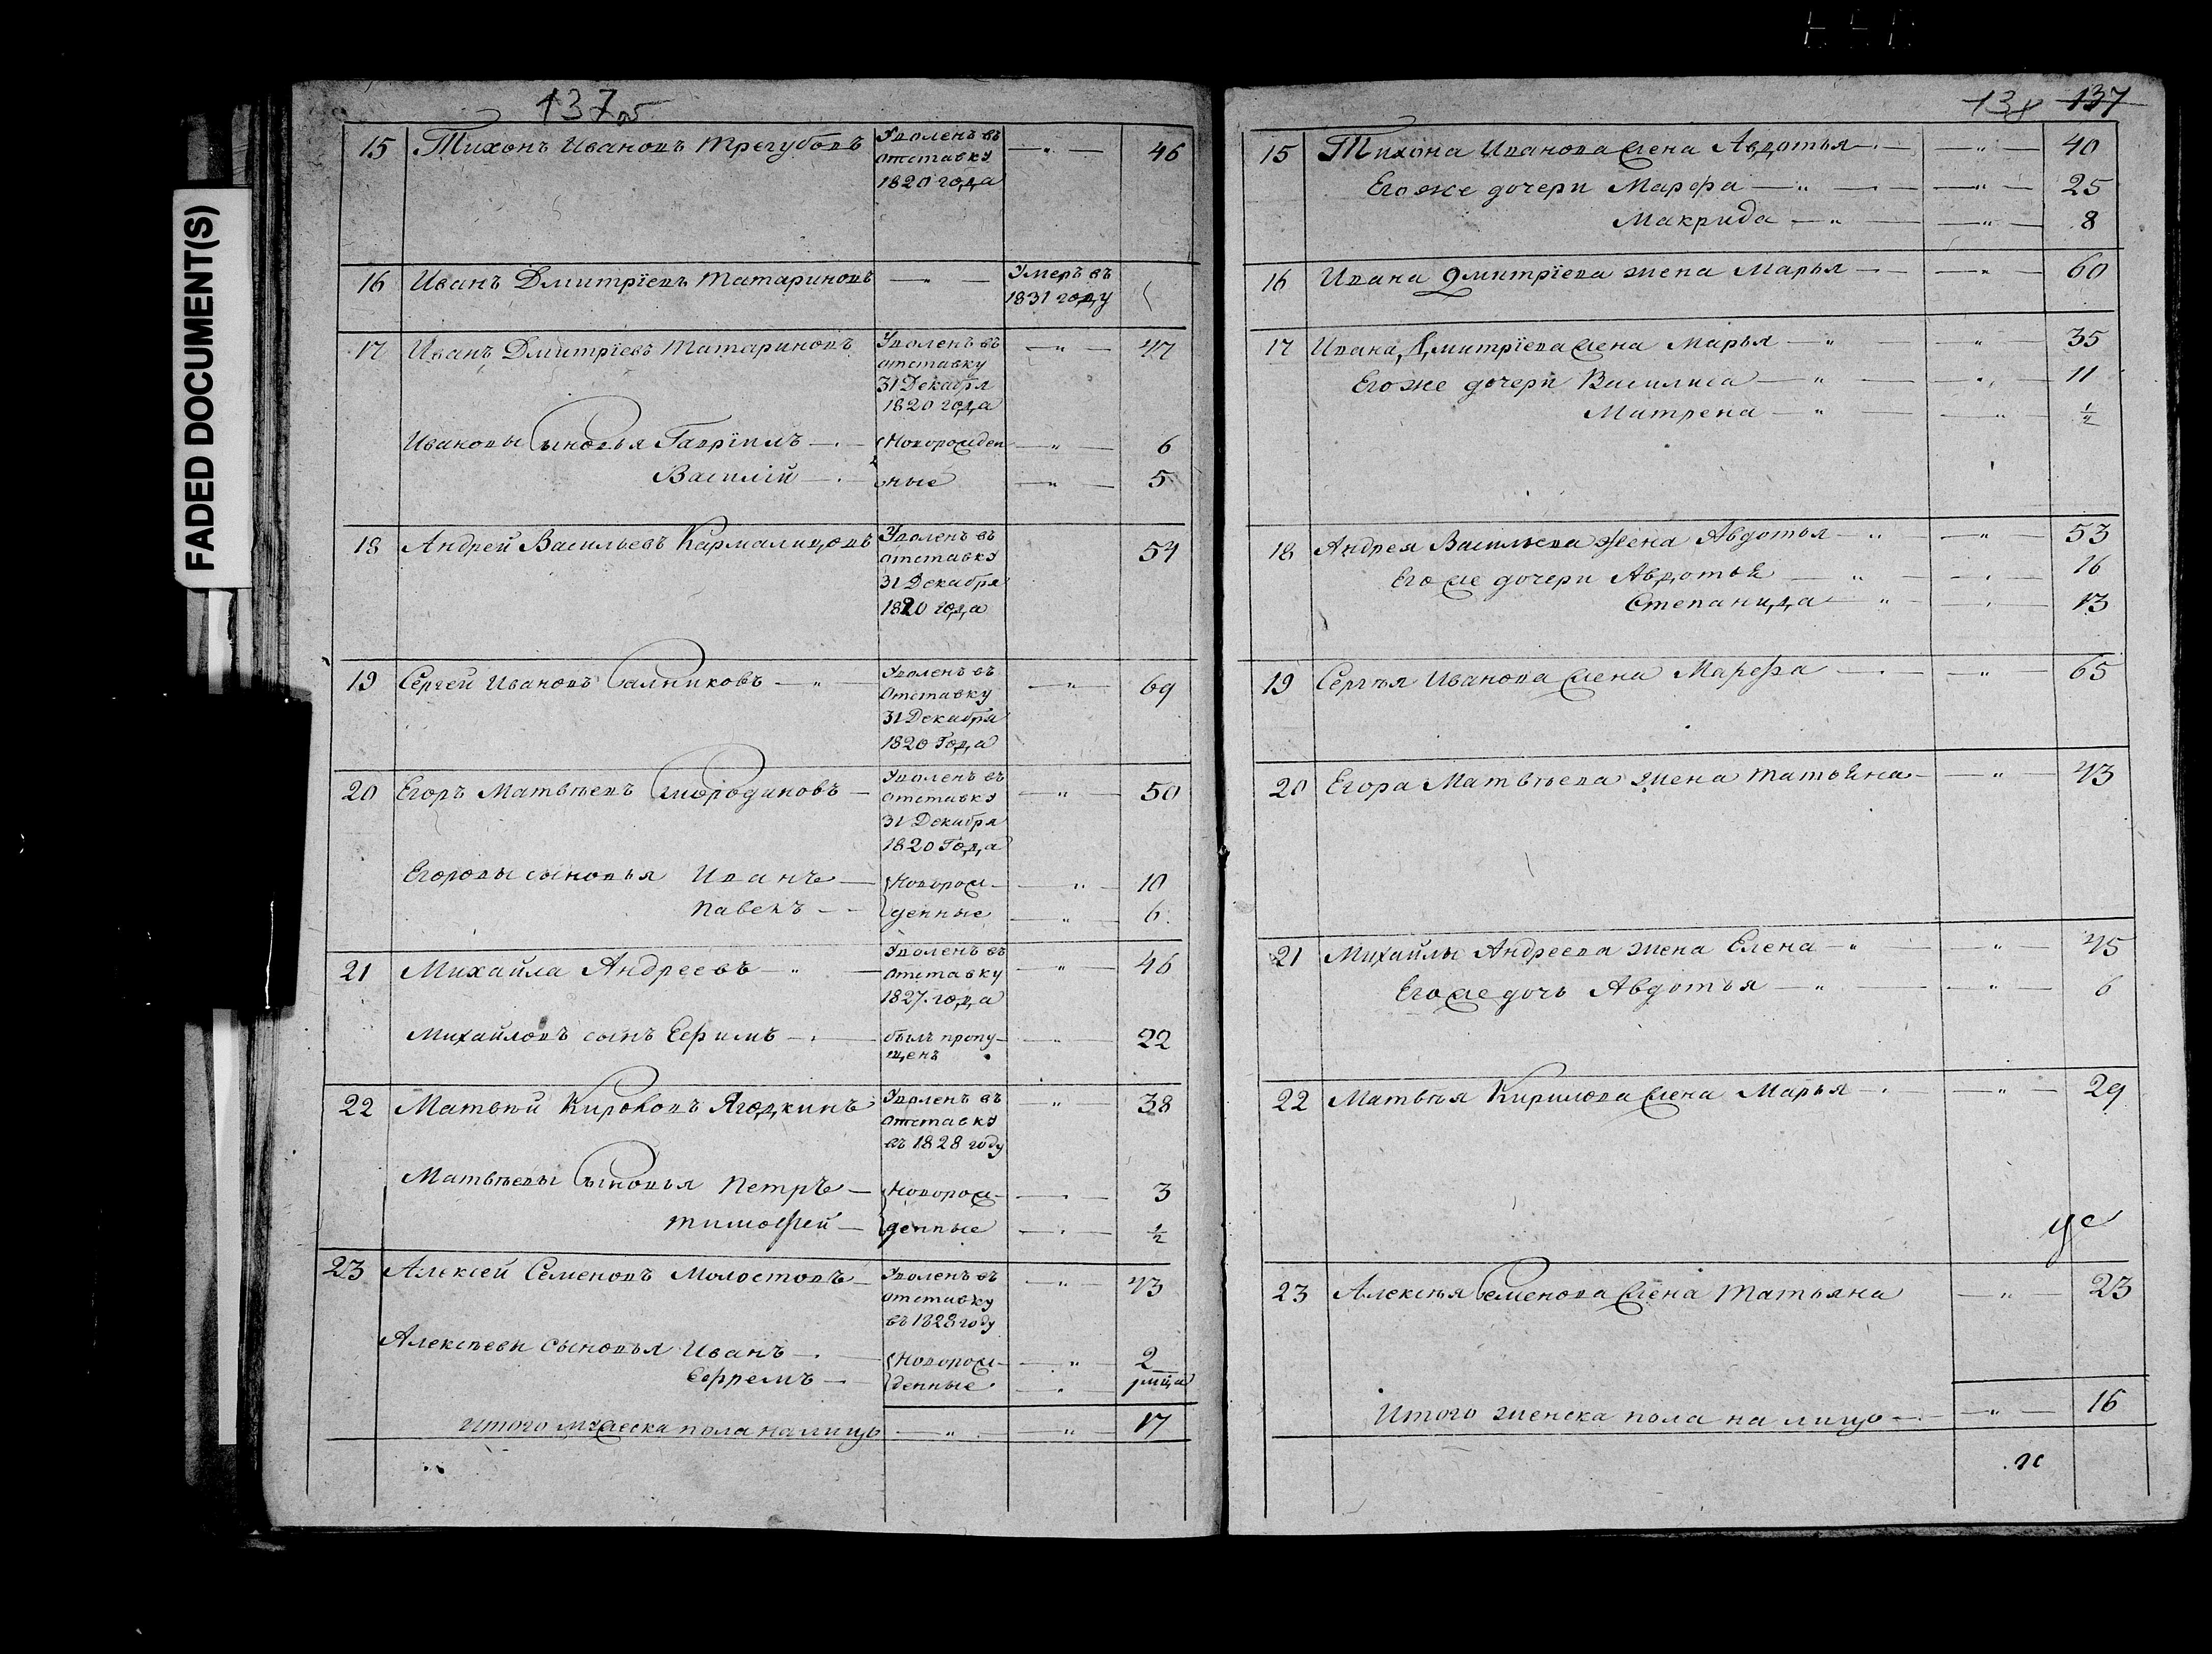 FADED DOCUMENT(S)
137 об
15 Тихонъ Ивановъ Трегубовъ Уволенъ въ — " — 46
отставку
1820 года
16 Иванъ Дмитрїевъ Татариновъ — " — Умеръ въ
1831 году
17 Иванъ Дмитрїевъ Татариновъ Уволенъ въ — " — 47
отставку
31 Декабря
1820 года
Ивановы Сыновья Гаврїилъ — Новорожден — " — 6
Василїй — ные — " — 5
18 Андрей Васильевъ Кармалицовъ Уволенъ въ 54
отставку
31 Декабря
1820 года
19 Сергей Ивановъ Сальниковъ — " Уволенъ въ — " — 69
Отставку
31 Декабря
1820 Года
20 Егоръ Матвѣевъ Смородиновъ — Уволенъ въ — " — 50
отставку
31 Декабря
1820 Года
Егоровы сыновья Иванъ — Новорож- — " — 10
Павелъ — денные — " — 6
21 Михайла Андреевъ — " — Уволенъ въ — " — 46
отставку
1827 года
Михайловъ сынъ Ефимъ — былъ пропу- — " — 22
щенъ
22 Матвѣй Кириловъ Ягодкинъ Уволенъ въ — " — 38
отставку
въ 1828 году
Матвѣевы Сыновья Петръ — Новорож- — " — 3
Тимофей — денные — " — ½
23 Алексей Семеновъ Молостовъ — Уволенъ въ — " — 43
отставку
въ 1828 году
Алексѣевы сыновья Иванъ — Новорож- — " — 2
Ефремъ — денные — " — 1 мѣца
Итого мужеска пола налицо — " — " — 17
138 137
15 Тихона Иванова жена Авдотья — " — 40
Его же дочери Марфа — " — — " — 25
Макрида — " — — " — 8
16 Ивана Дмитрїева жена Марья — — " — 60
17 Ивана Дмитрїева жена Марья — " — " — 35
Его же дочери Василиса — " — — " — 11
Матрена — " — — " — ½
18 Андрея Васильева жена Авдотья — " — " — 53
Его же дочери Авдотья — " — — " — 16
Степанида — " — — " — 13
19 Сергѣя Иванова жена Марфа — — " — 65
20 Егора Матвѣева жена Татьяна — — " — 43
21 Михайлы Андреева жена Елена — " — " — 45
Его же дочь Авдотья — " — — " — 6
22 Матвѣя Кирилова жена Марья — — " — 29
23 Алексѣя Семенова жена Татьяна — " — 23
Итого женска пола на лицо — — " — 16